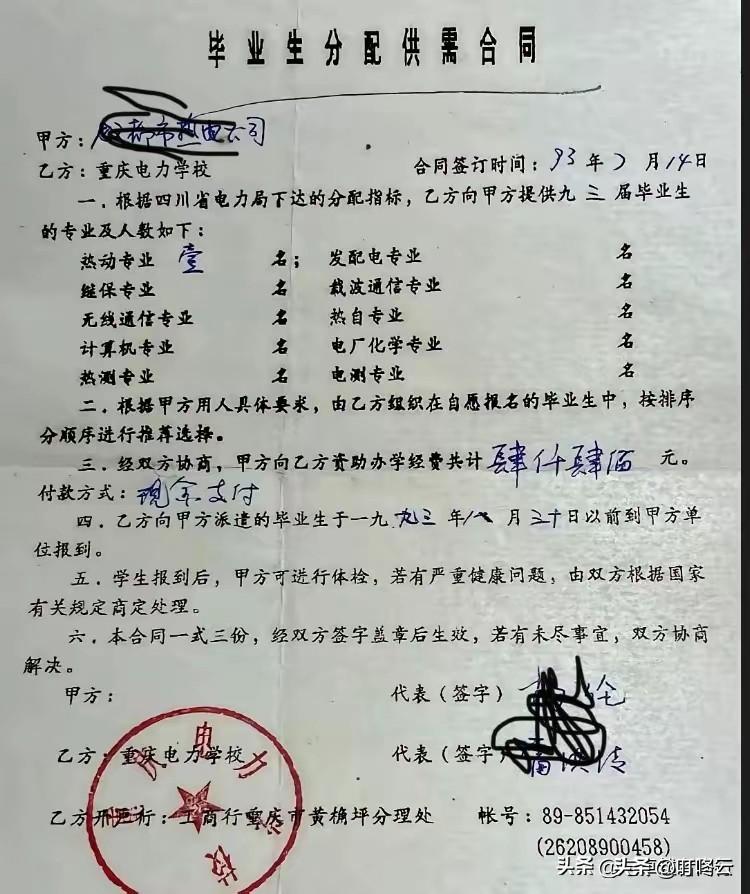 毕业生分配供需合同
甲方：都市热电公司
乙方：重庆电力学校 合同签订时间：93年7月14日
一．根据四川省电力局下达的分配指标，乙方向甲方提供九三届毕业生
的专业及人数如下：
热动专业 壹 名； 发配电专业 名
继保专业 名 载波通信专业 名
无线通信专业 名 热自专业 名
计算机专业 名 电厂化学专业 名
热测专业 名 电测专业 名
二．根据甲方用人具体要求，由乙方组织在自愿报名的毕业生中，按排序
分顺序进行推荐选择。
三．经双方协商，甲方向乙方资助办学经费共计 肆仟肆佰 元。
付款方式：现金支付
四．乙方向甲方派遣的毕业生于一九九三年八月三十日以前到甲方单
位报到。
五．学生报到后，甲方可进行体检，若有严重健康问题，由双方根据国家
有关规定商定处理。
六．本合同一式三份，经双方签字盖章后生效，若有未尽事宜，双方协商
解决。
甲方： 代表（签字）
乙方：重庆电力学校 代表（签字）
乙方开户行：工商行重庆市黄桷坪分理处 帐号：89-851432054
(26208900458)
电力学校
头条 @头条@盯咚云